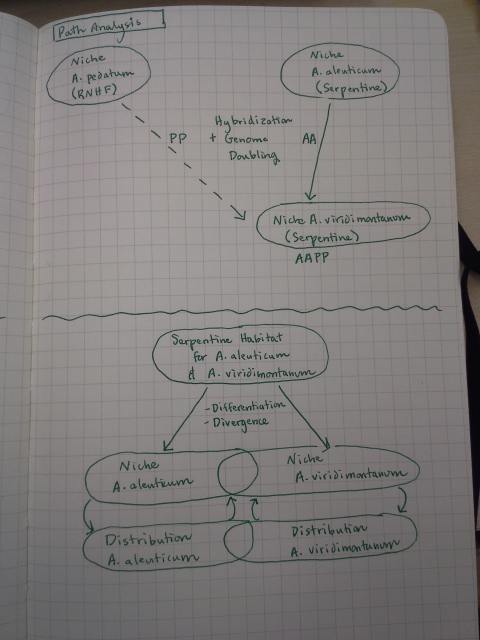 Path Analysis
Niche
A. pedatum
(RNHF)
Niche
A. aleuticum
(Serpentine)
PP
Hybridization
+ Genome
Doubling
AA
Niche A. viridimontanum
(Serpentine)
AAPP
Serpentine Habitat
for A. aleuticum
& A. viridimontanum
- Differentiation
- Divergence
Niche
A. aleuticum
Niche
A. viridimontanum
Distribution
A. aleuticum
Distribution
A. viridimontanum